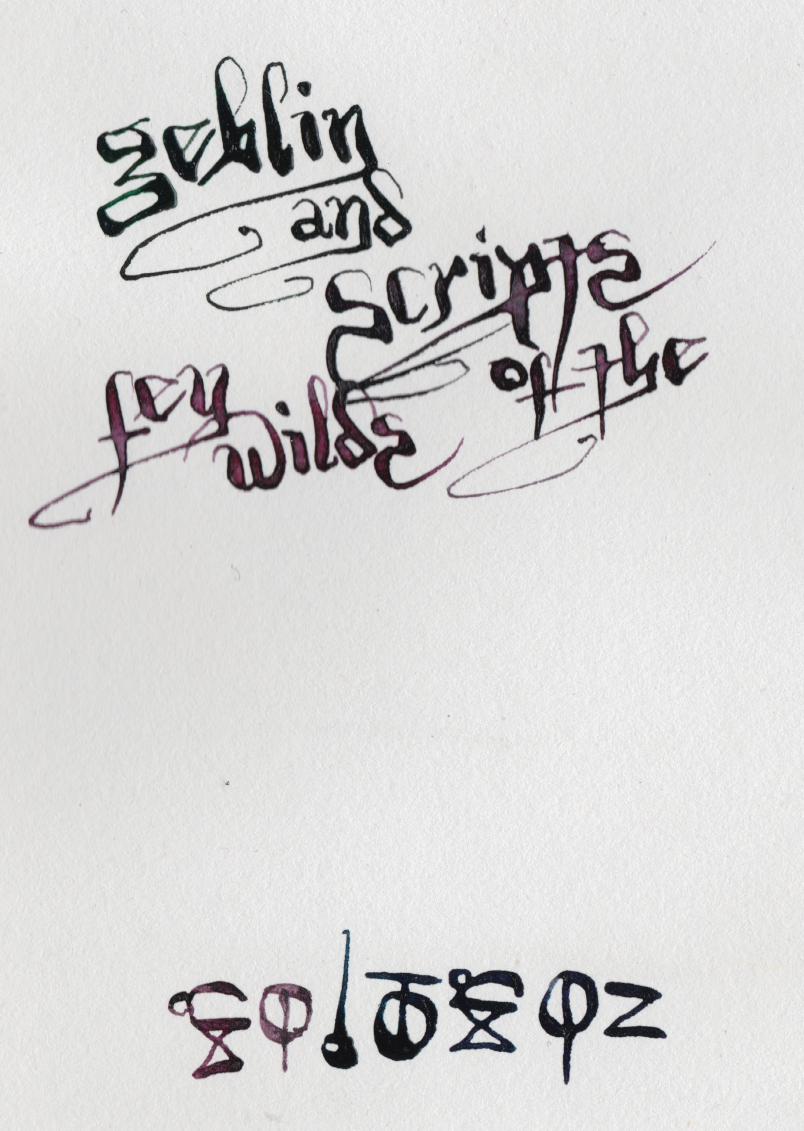 geblin
and
scripts
of the
fey
wilds